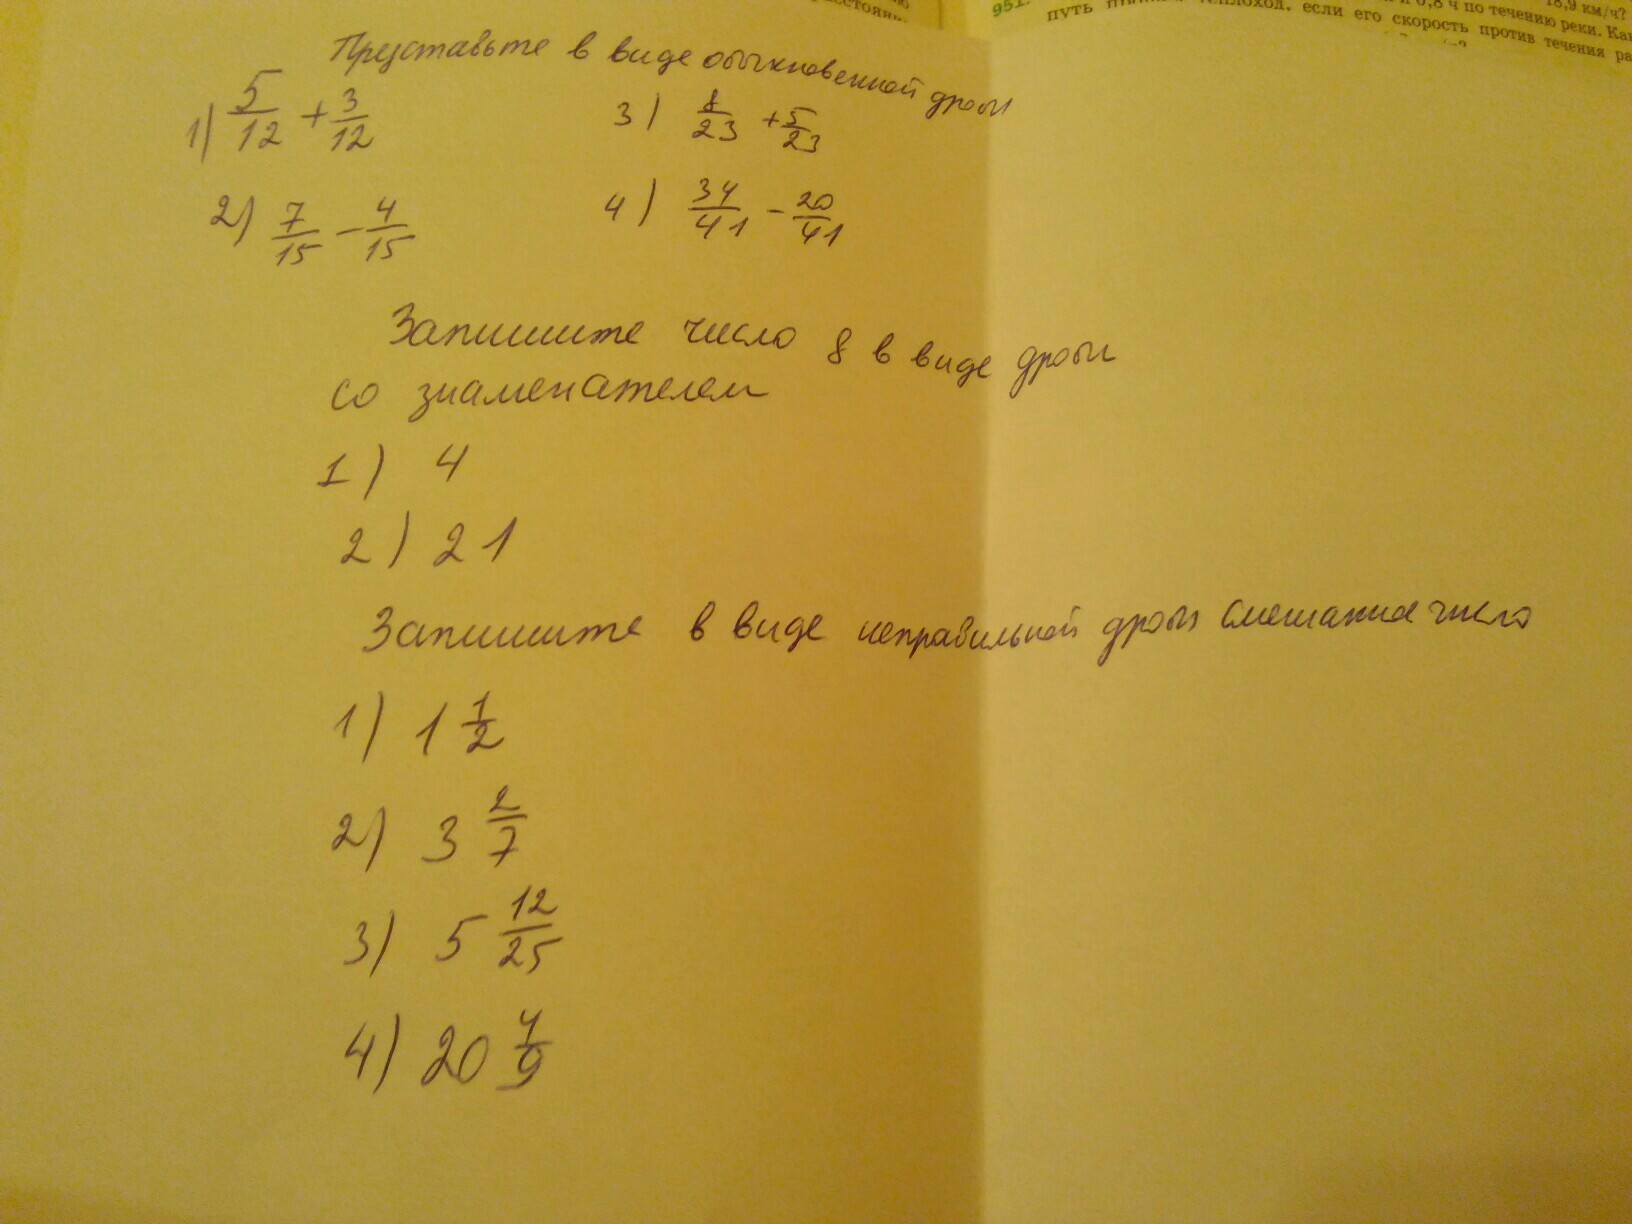 18,9 км/ч?
951.
0,8 ч по течению реки. Как
путь теплоход, если его скорость против течения ра
Представьте в виде обыкновенной дроби
1) 5/12 + 3/12
3) 8/23 + 5/23
2) 7/15 - 4/15
4) 34/41 - 20/41
Запишите число 8 в виде дроби
со знаменателем
1) 4
2) 21
Запишите в виде неправильной дроби смешанное число
1) 1 1/2
2) 3 2/7
3) 5 12/25
4) 20 4/9